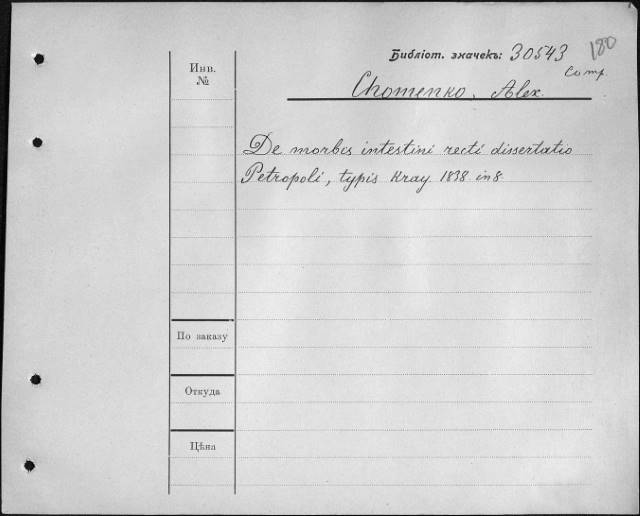 180
Библіот. значекъ: 30543
Comp.
Инв.
№
Chomenko, Alex.
De morbis intestini recti dissertatio
Petropoli, typis Kray 1838 in 8
По заказу
Откуда
Цѣна